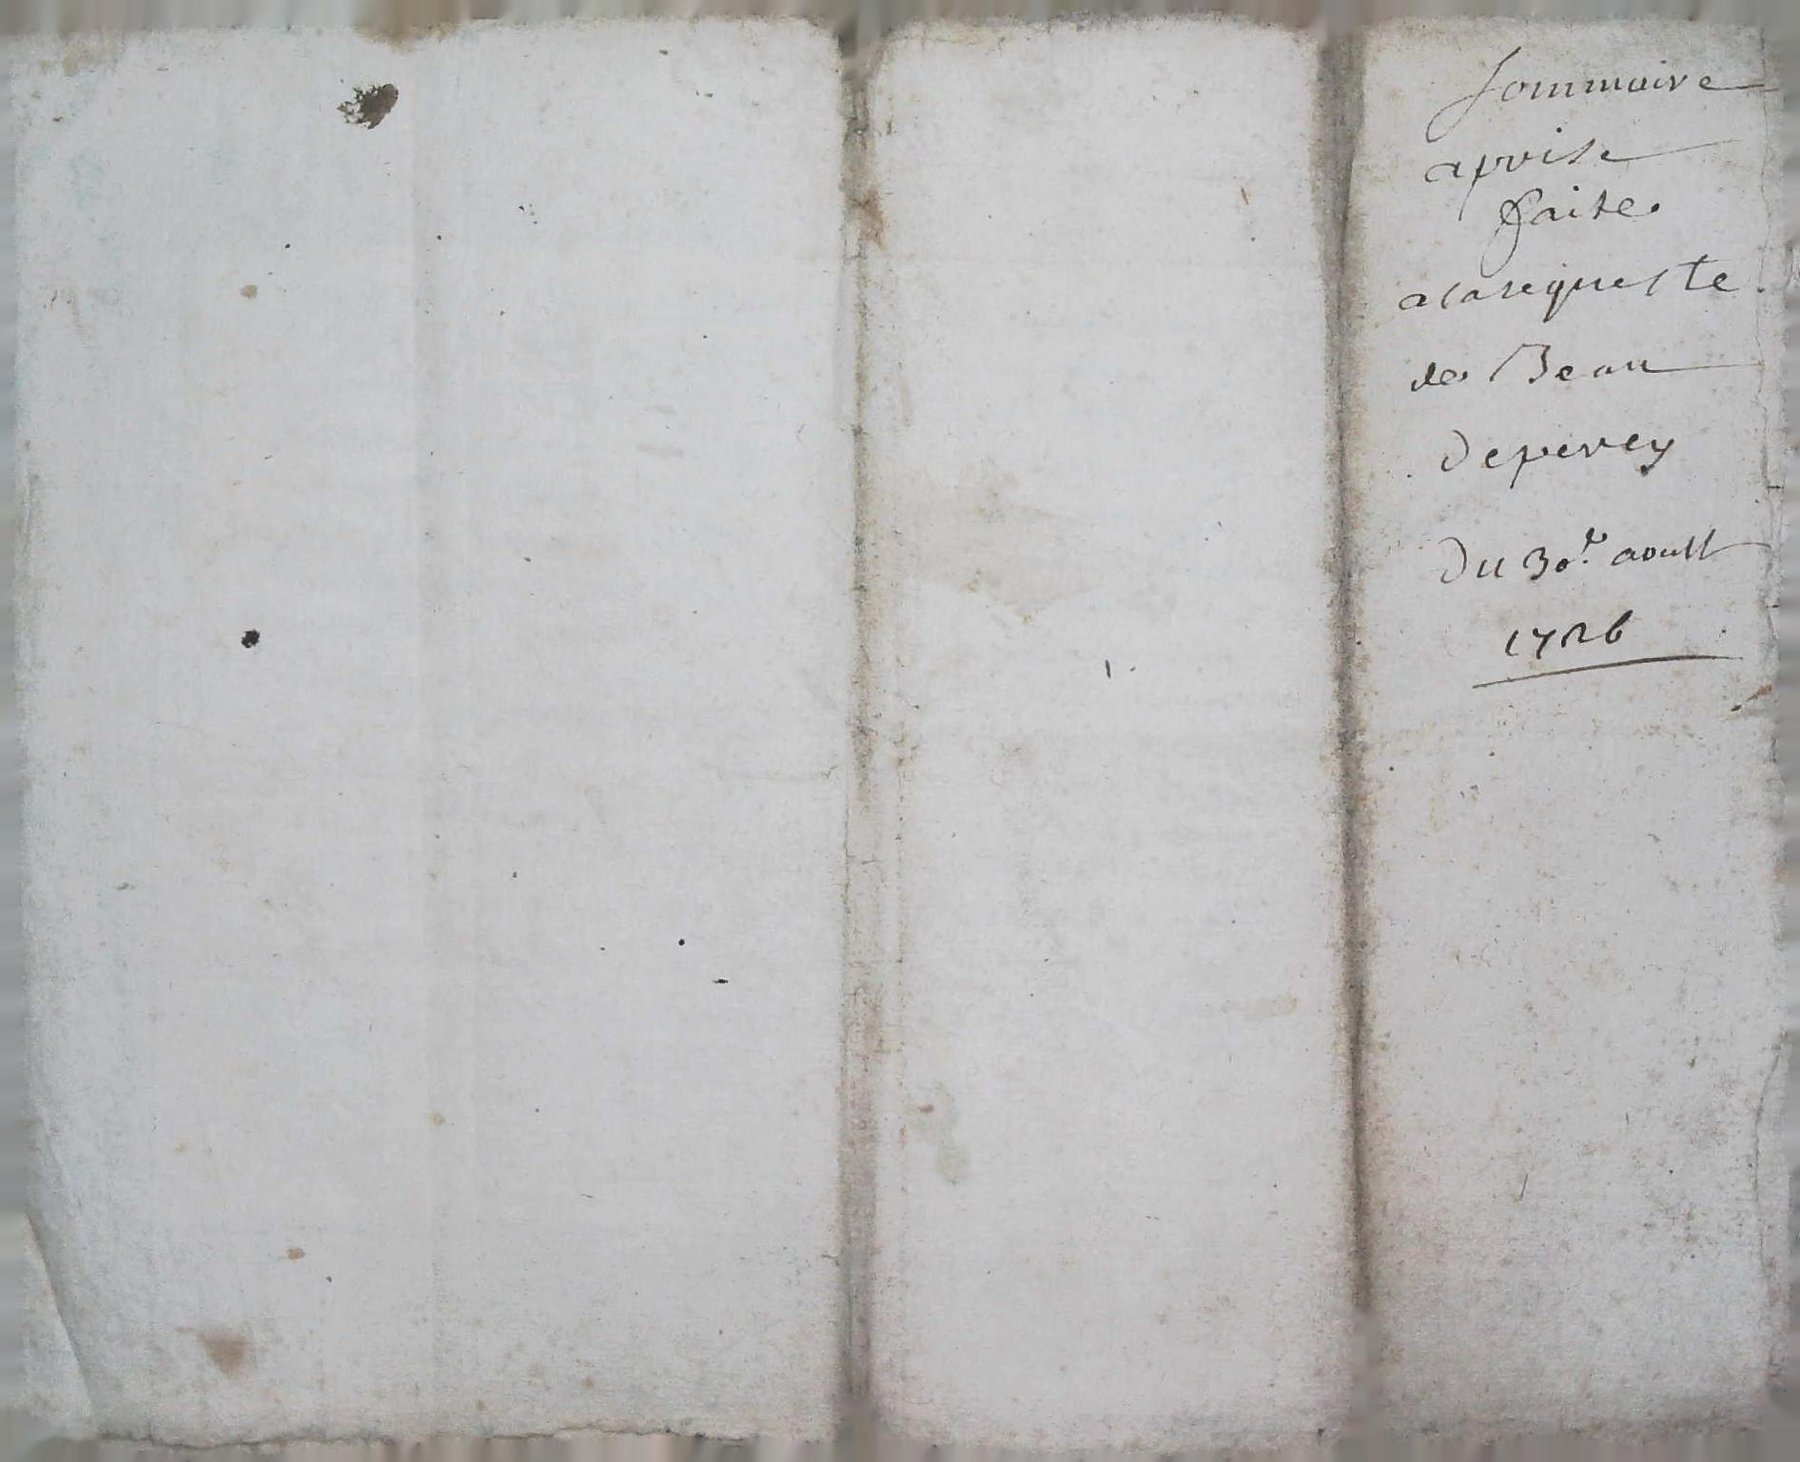 Sommaire
aprise
faite
alarequeste
de Jean
Deperey
Du 30.e aoust
1726